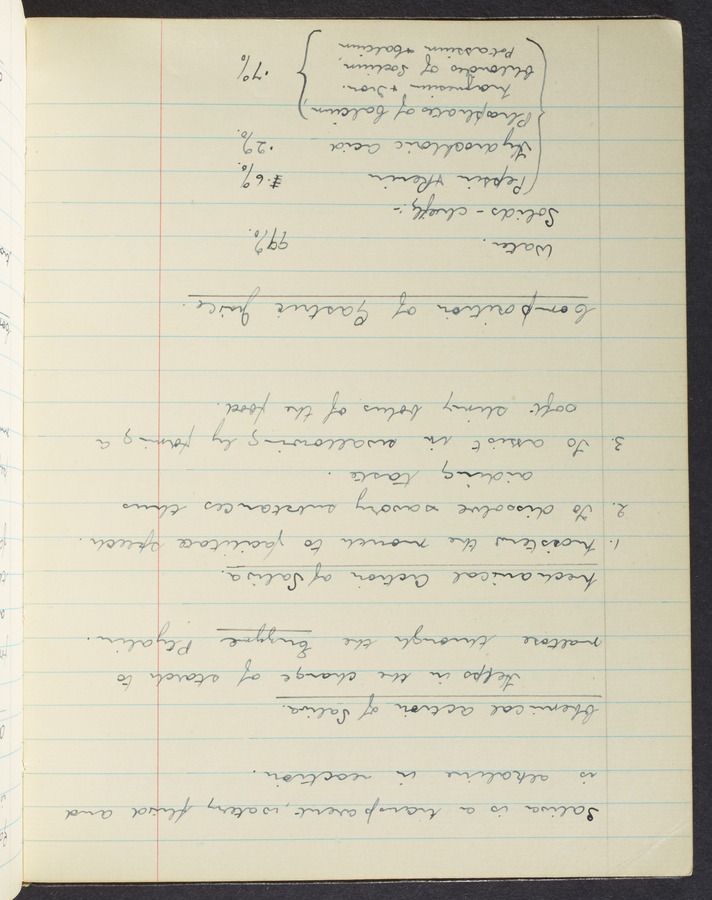 Saliva is a transparent, watery fluid and
is alkaline in reaction.
Chemical action of Saliva.
Helps in the change of starch to
maltose through the Enzyme Ptyalin.
Mechanical Action of Saliva.
1. Moistens the mouth to facilitate speech.
2. To dissolve savory substances thus
aiding taste.
3. To assist in swallowing by forming a
soft slimy bolus of the food.
Composition of Gastric Juice.
Water. 99%.
Solids - chiefly:-
Pepsin & Renin .6%.
Hydrochloric acid .2%.
Phosphates of Calcium,
Magnesium & Iron.
Chlorides of Sodium, .7%
Potassium & Calcium